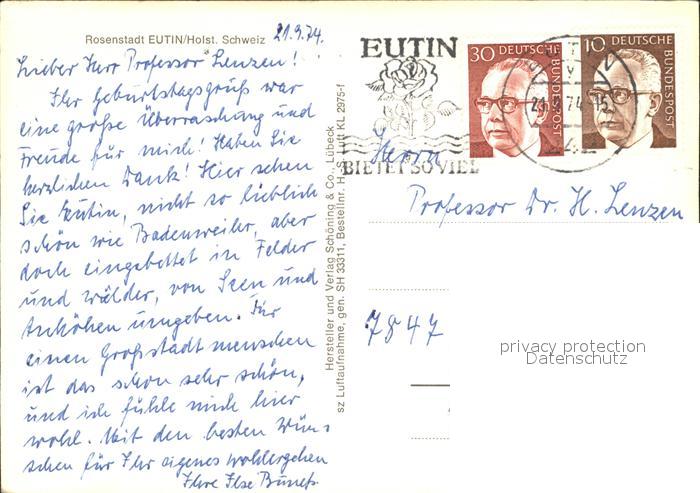 Rosenstadt EUTIN/Holst. Schweiz
21.9.74.
Lieber Herr Professor Lenzen!
Ihr Geburtstagsgruß war
eine große Überraschung und
Freude für mich! Haben Sie
herzlichen Dank! Hier sehen
Sie Eutin, nicht so lieblich
schön wie Badenweiler, aber
doch eingebettet in Felder
und Wälder, von Seen und
Anhöhen umgeben. Für
einen Großstadtmenschen
ist das schon sehr schön,
und ich fühle mich hier
wohl. Mit den besten Wün-
schen für Ihr eigenes Wohlergehen
Ihre Ilse
Hersteller und Verlag Schöning & Co., Lübeck
sz Luftaufnahme, gen. SH 33311, Bestellnr. H. S. Luft KL 2975-f
EUTIN
BIETET SO VIEL
30 DEUTSCHE
BUNDESPOST
10 DEUTSCHE
BUNDESPOST
Herrn
Professor Dr. H. Lenzen
7847
privacy protection
Datenschutz